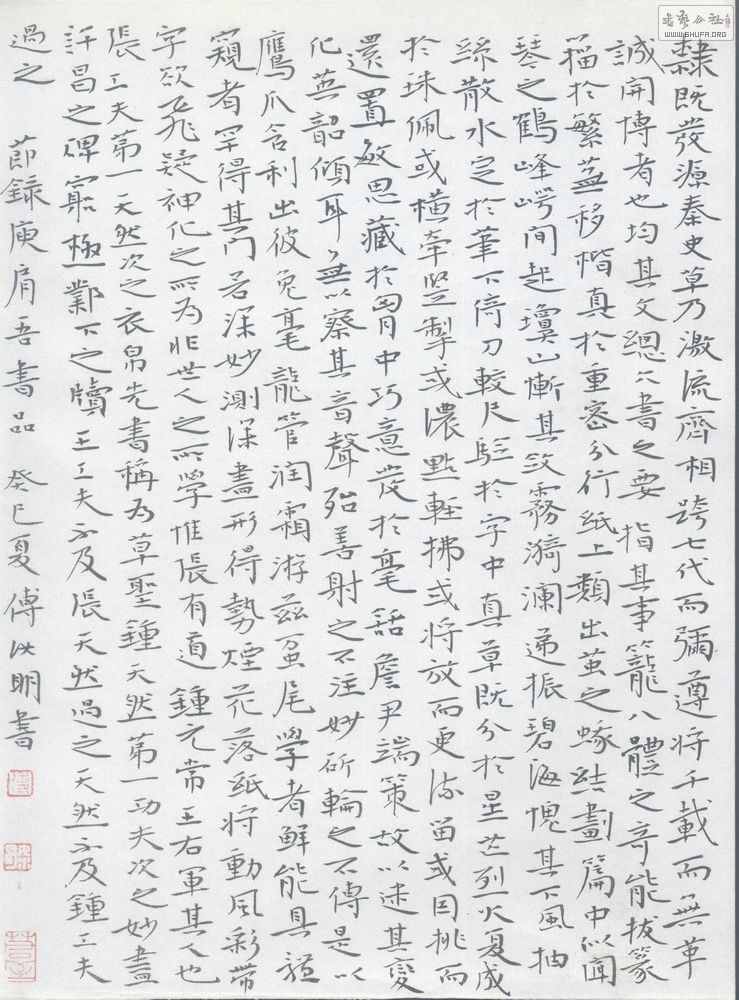 書藝公社
WWW.SHUFA.ORG
隸既發源秦史草乃激流齊相跨七代而彌遵將千載而無革
誠開博者也均其文總六書之要指其事籠八體之奇能拔篆
籀於繁蕪移楷真於重密分行紙上類出茧之蛾結劃篇中似聞
琴之鶴峰崿間起瓊山慚其斂霧漪瀾遞振碧海愧其下風抽
絲散水定於筆下倚刀較尺驗於字中真草既分於星芒列火復成
於珠佩或橫牽竪掣或濃點輕拂或將放而更流留或因挑而
還置敏思藏於胸中巧意發於毫銛詹尹端策故以迷其變
化英韶傾耳無以察其音聲殆善射之不注妙斫輪之不傳是以
鷹爪含利出彼兔毫龍管潤霜游茲蠆尾學者鮮能具體
窺者罕得其門若深妙測深盡形得勢煙花落紙將動風彩帶
字欲飛疑神化之所為非世人之所學惟張有道鍾元常王右軍其人也
張工夫第一天然次之衣帛先書稱為草聖鍾天然第一功夫次之妙盡
許昌之碑窮極鄴下之牘王工夫不及張天然過之天然不及鍾工夫
過之 節錄庾肩吾書品 癸巳夏傅洪明書